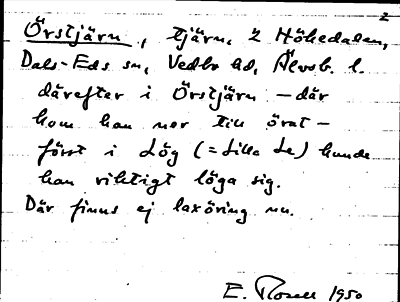 2
Örstjärn, tjärn, 2 Hökedalen,
Dals-Eds sn, Vedbo hd, Älvsb. l.
därefter i Örstjärn – där
kom han ner till örat –
först i Lög (= Lilla Le) kunde
han riktigt löga sig.
Där finns ej laxöring nu.
E. Rosell 1950